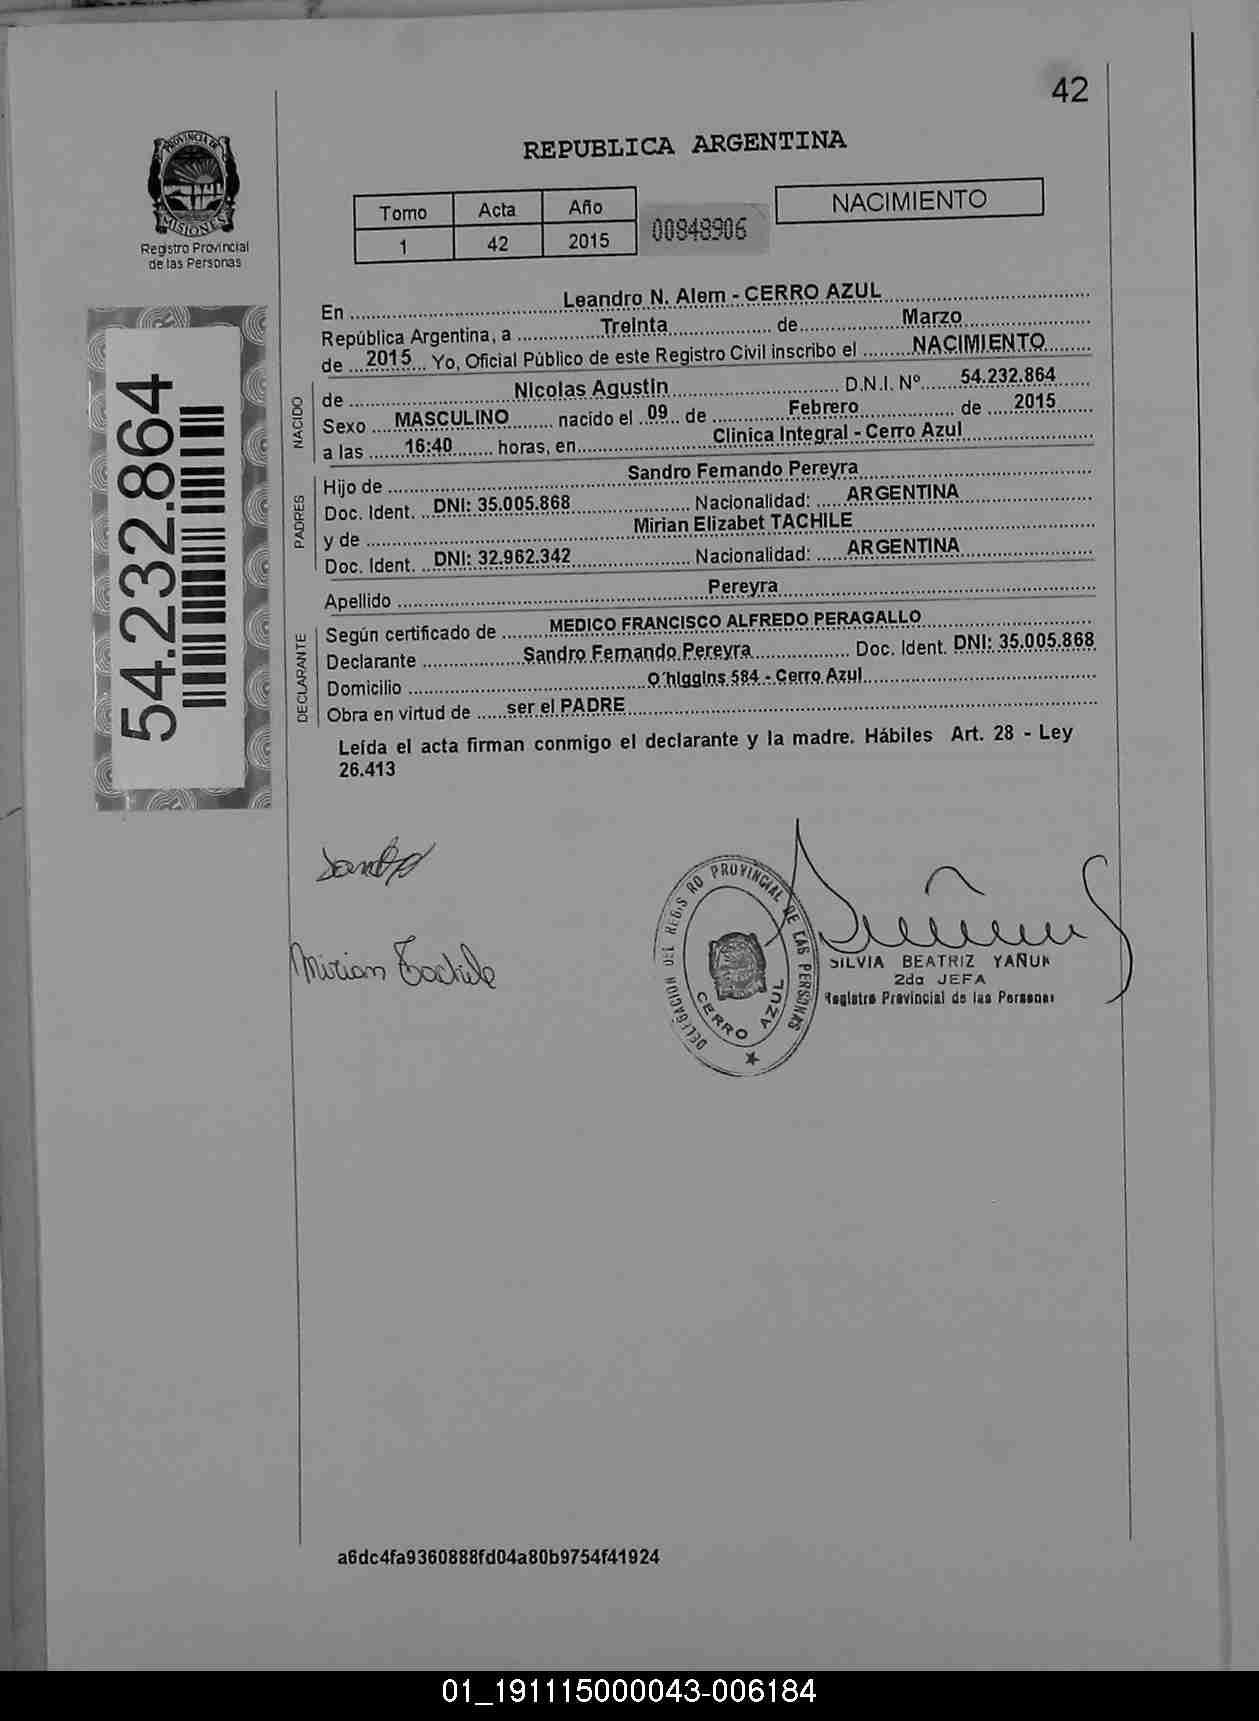 42
PROVINCIA DE
MISIONES
Registro Provincial
de las Personas
REPUBLICA ARGENTINA
Tomo Acta Año
1 42 2015
00848906
NACIMIENTO
54.232.864
En Leandro N. Alem - CERRO AZUL
República Argentina, a Treinta de Marzo
de 2015 Yo, Oficial Público de este Registro Civil inscribo el NACIMIENTO
NACIDO
de Nicolas Agustin D.N.I. Nº 54.232.864
Sexo MASCULINO nacido el 09 de Febrero de 2015
a las 16:40 horas, en Clinica Integral - Cerro Azul
PADRES
Hijo de Sandro Fernando Pereyra
Doc. Ident. DNI: 35.005.868 Nacionalidad: ARGENTINA
y de Mirian Elizabet TACHILE
Doc. Ident. DNI: 32.962.342 Nacionalidad: ARGENTINA
Apellido Pereyra
DECLARANTE
Según certificado de MEDICO FRANCISCO ALFREDO PERAGALLO
Declarante Sandro Fernando Pereyra Doc. Ident. DNI: 35.005.868
Domicilio O´higgins 584 - Cerro Azul
Obra en virtud de ser el PADRE
Leída el acta firman conmigo el declarante y la madre. Hábiles Art. 28 - Ley
26.413
Sandro
Mirian Tachile
DELEGACION DEL REGISTRO PROVINCIAL DE LAS PERSONAS
CERRO AZUL
SILVIA BEATRIZ YAÑUK
2da JEFA
Registro Provincial de las Personas
a6dc4fa9360888fd04a80b9754f41924
01_191115000043-006184